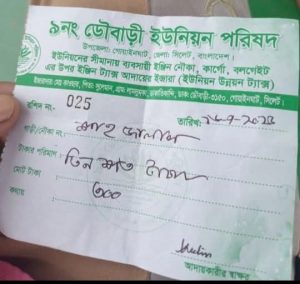 ৯নং ডৌবাড়ী ইউনিয়ন পরিষদ
উপজেলা: গোয়াইনঘাট, জেলা: সিলেট, বাংলাদেশ।
ইউনিয়নের সীমানায় ব্যবসায়ী ইঞ্জিন নৌকা, কার্গো, বলগেইট
এর উপর ইঞ্জিন ট্যাক্স আদায়ের ইজারা (ইউনিয়ন উন্নয়ন ট্যাক্স)
ডাক: ডৌবাড়ী-৩১৫০, গোয়াইনঘাট, সিলেট।
রশিদ নং: 025
তারিখ:
গাড়ী/নৌকা নং: শাহ জালাল
টাকার পরিমাণ: তিন শত টাকা
মোট টাকা ৩০০
কথায়
আদায়কারীর স্বাক্ষর